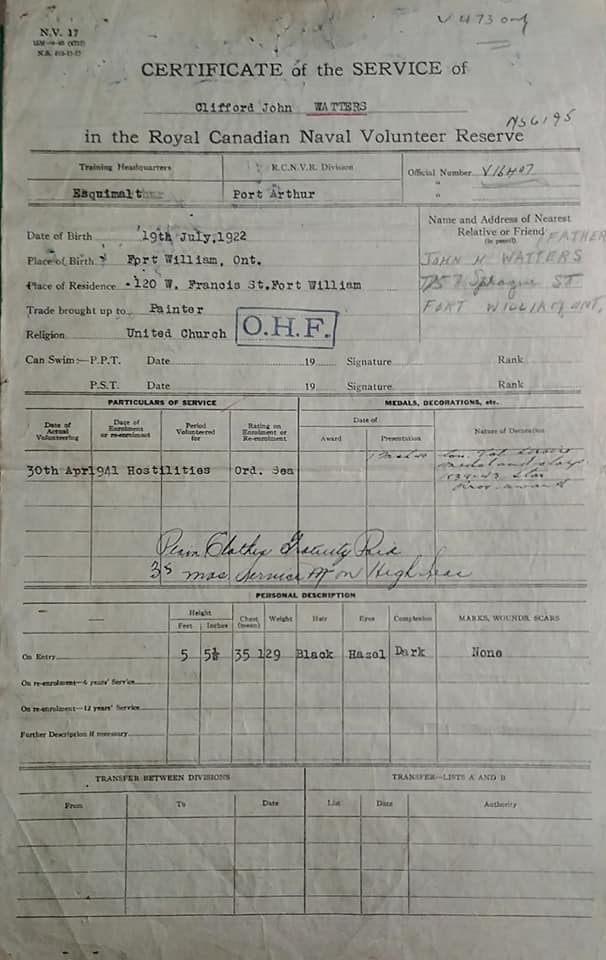 N.V. 17
CERTIFICATE of the SERVICE of
Clifford John WATTERS
in the Royal Canadian Naval Volunteer Reserve
Training Headquarters R.C.N.V.R. Division Official Number
Esquimalt Port Arthur
Name and Address of Nearest
Relative or Friend
(in pencil)
FATHER
JOHN H. WATTERS
ST
FORT WILLIAM ONT,
Date of Birth 19th July,1922
Place of Birth Fort William, Ont.
Place of Residence 120 W. Francis St.Fort William
Trade brought up to Painter
Religion United Church
O.H.F.
Can Swim:—P.P.T. Date 19 Signature Rank
P.S.T. Date 19 Signature Rank
PARTICULARS OF SERVICE MEDALS, DECORATIONS, etc.
Date of Actual Volunteering Date of Enrolment or re-enrolment Period Volunteered for Rating on Enrolment or Re-enrolment Award Date of Presentation Nature of Decoration
30th Apr1941 Hostilities Ord. Sea
Plain Clothes Gratuity Paid
38 mos. Service on High Seas
PERSONAL DESCRIPTION
Height Feet Inches Chest (mean) Weight Hair Eyes Complexion MARKS, WOUNDS, SCARS
On Entry 5 5½ 35 129 Black Hazel Dark None
On re-enrolment—6 years' Service
On re-enrolment—12 years' Service
Further Description if necessary
TRANSFER BETWEEN DIVISIONS TRANSFER—LISTS A AND B
From To Date List Date Authority